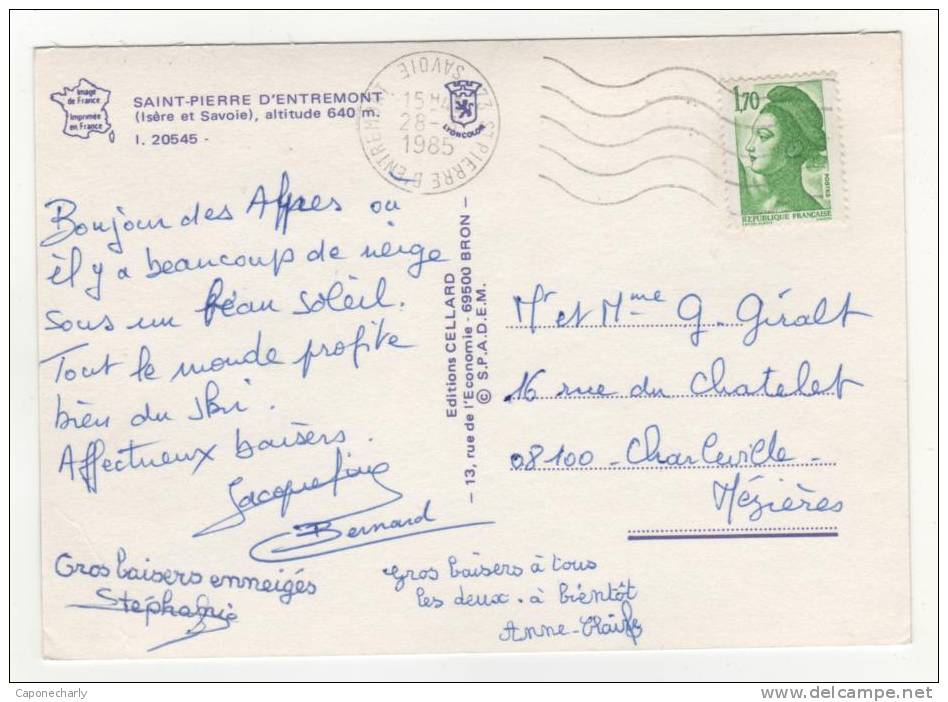 Image
de France
Imprimée
en France
SAINT-PIERRE D'ENTREMONT
(Isère et Savoie), altitude 640 m.
I. 20545 -
LYONCOLOR
73 ST PIERRE D'ENTREMONT
SAVOIE
15H
28-
1985
1,70
POSTES
REPUBLIQUE FRANÇAISE
Bonjour des Alpes ou
il y a beaucoup de neige
sous un beau soleil.
Tout le monde profite
bien du ski.
Affectueux baisers.
Jacqueline
Bernard
Gros baisers enneigés
Stéphanie
Gros baisers à tous
les deux. à bientôt
Anne-Claire
Editions CELLARD
- 13, rue de l'Economie - 69500 BRON -
© S.P.A.D.E.M.
Mr et Mme G. Giralt
16 rue du Chatelet
08100 - Charleville -
Mézières
Caponecharly
delcampe.net